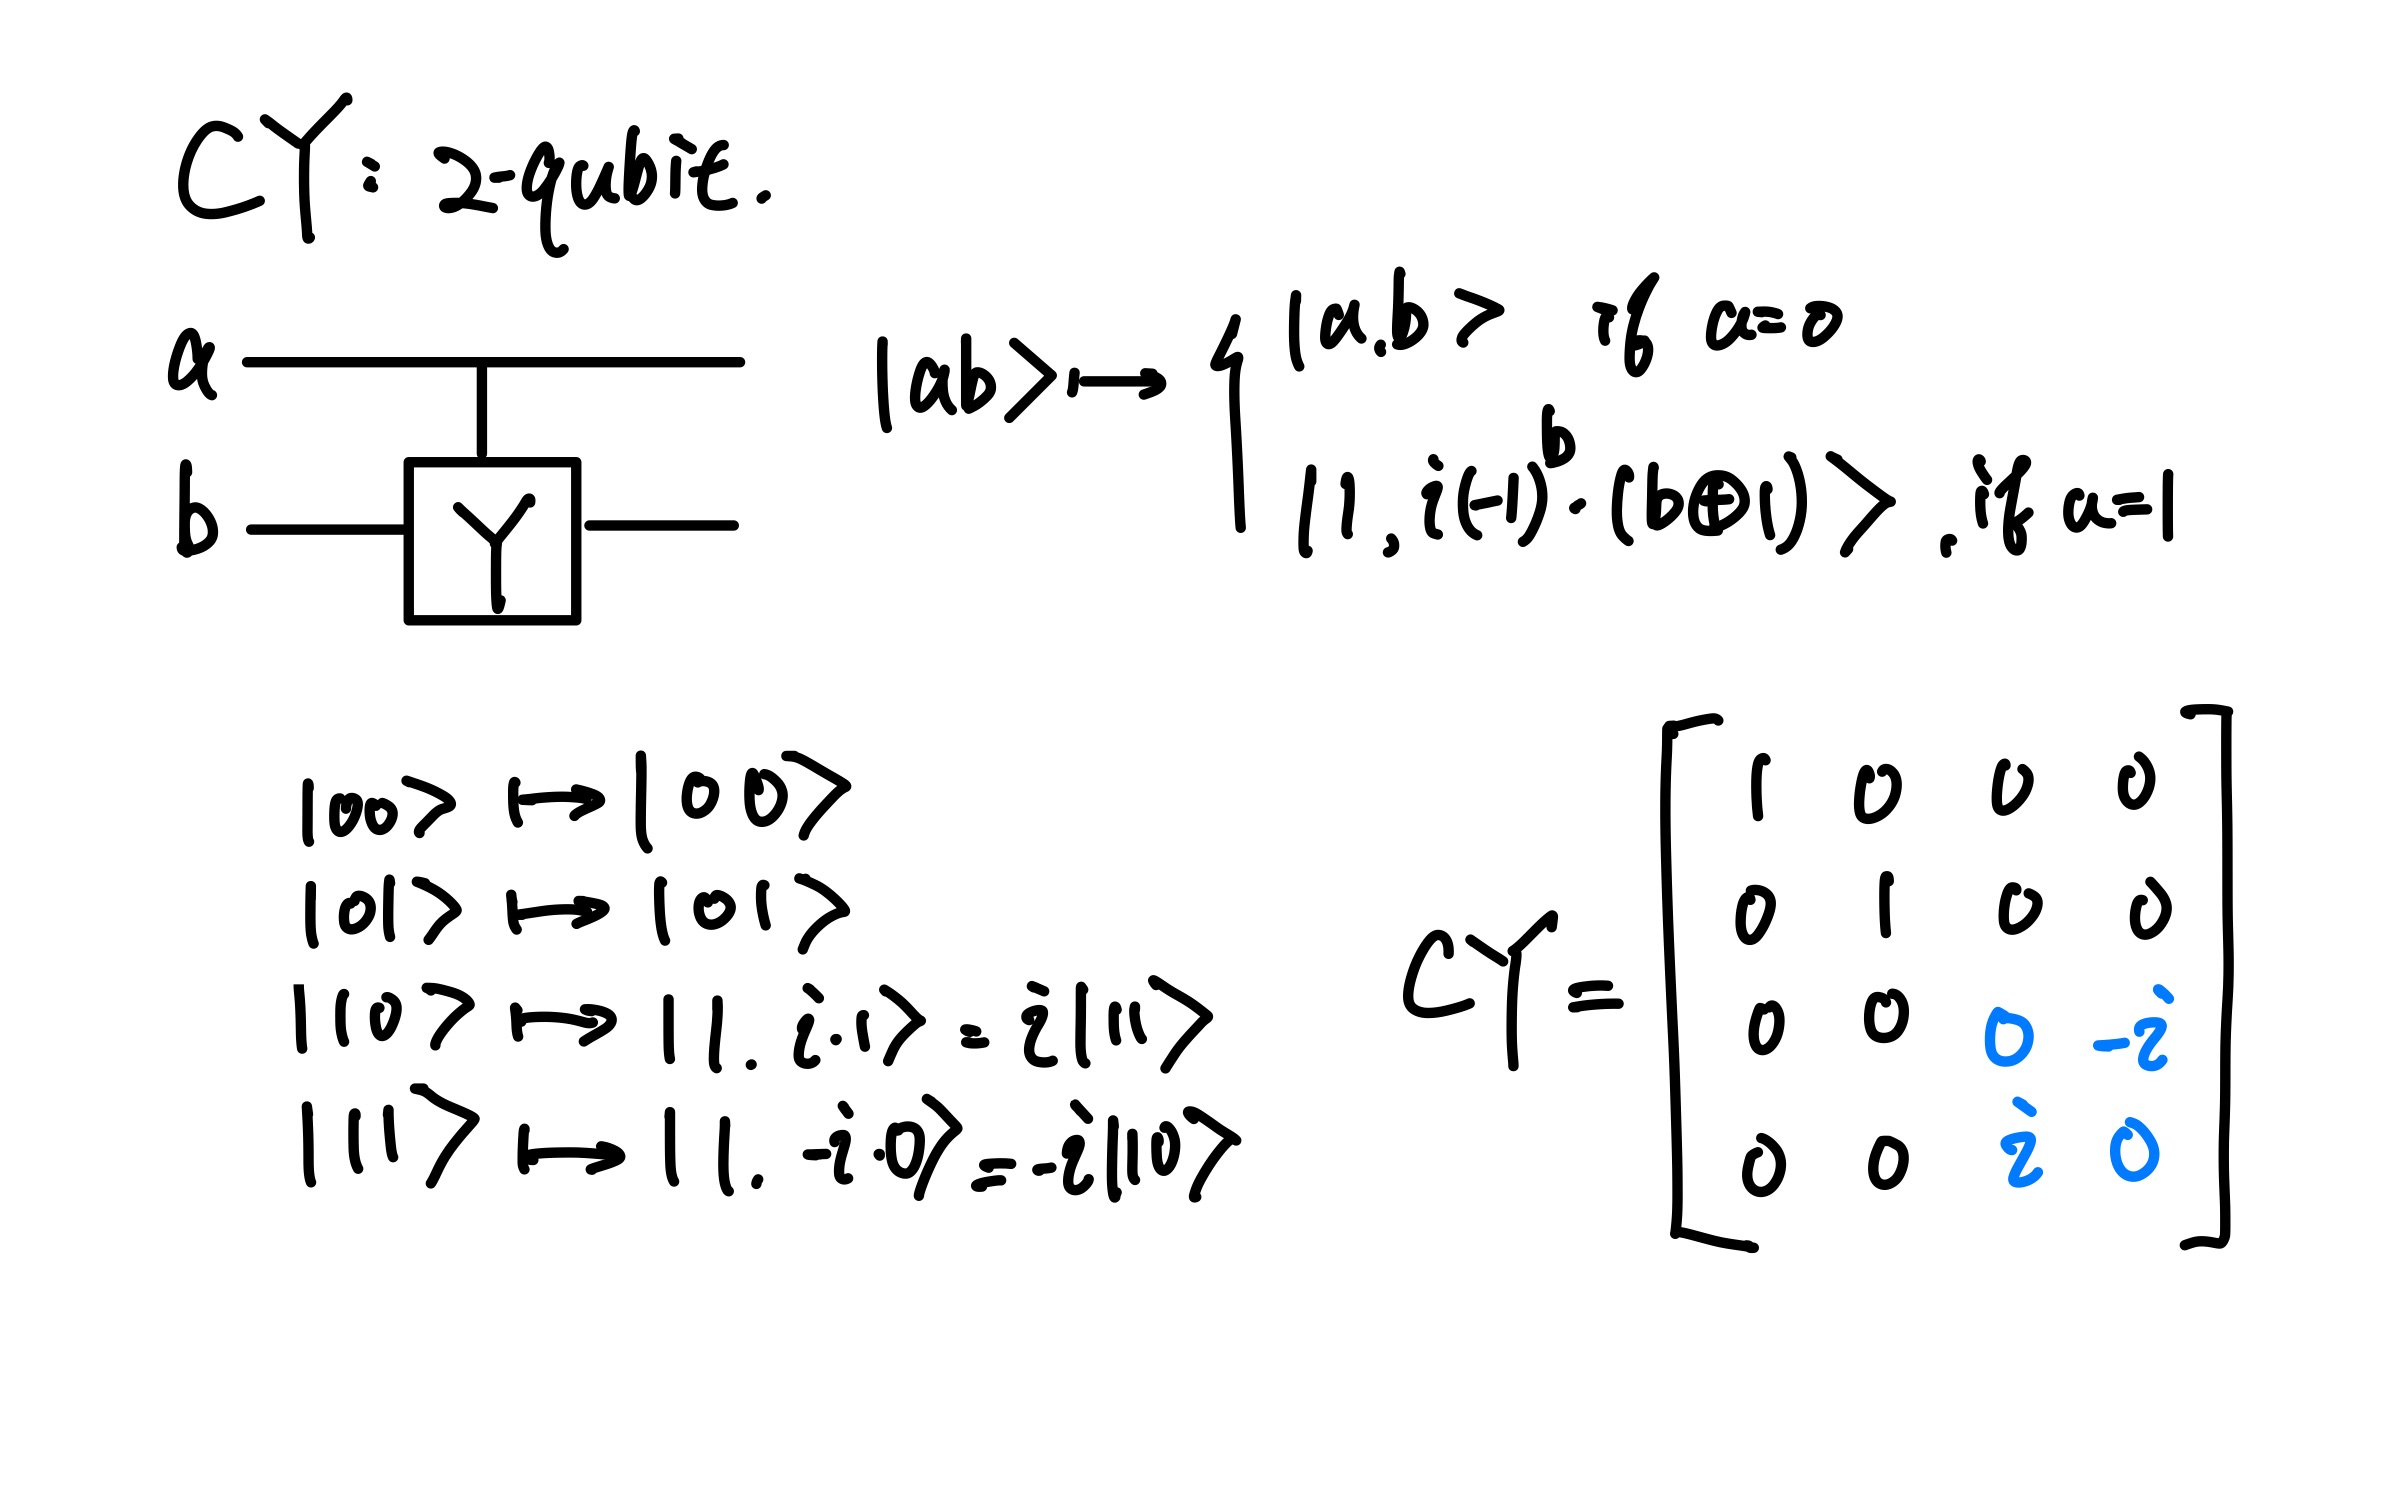 CY : 2-qubit.
a
b
Y
|ab> ↦ {
|a,b> if a=0
|1, i(-1)^b · (b⊕1)> , if a=1
|00> ↦ |00>
|01> ↦ |01>
|10> ↦ |1, i·1> = i|11>
|11> ↦ |1, -i·0> = -i|10>
CY = [
1 0 0 0
0 1 0 0
0 0 0 -i
0 0 i 0
]